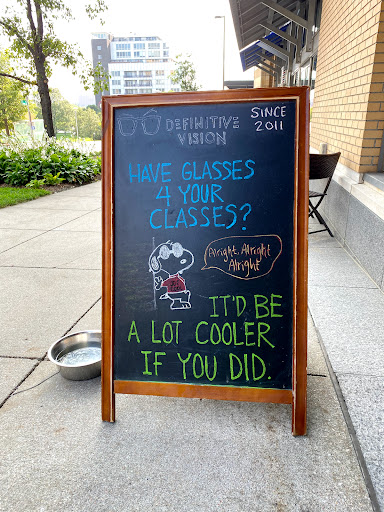 DEFINITIVE
VISION
SINCE
2011
HAVE GLASSES
4 YOUR
CLASSES?
Alright, Alright
Alright
IT'D BE
A LOT COOLER
IF YOU DID.